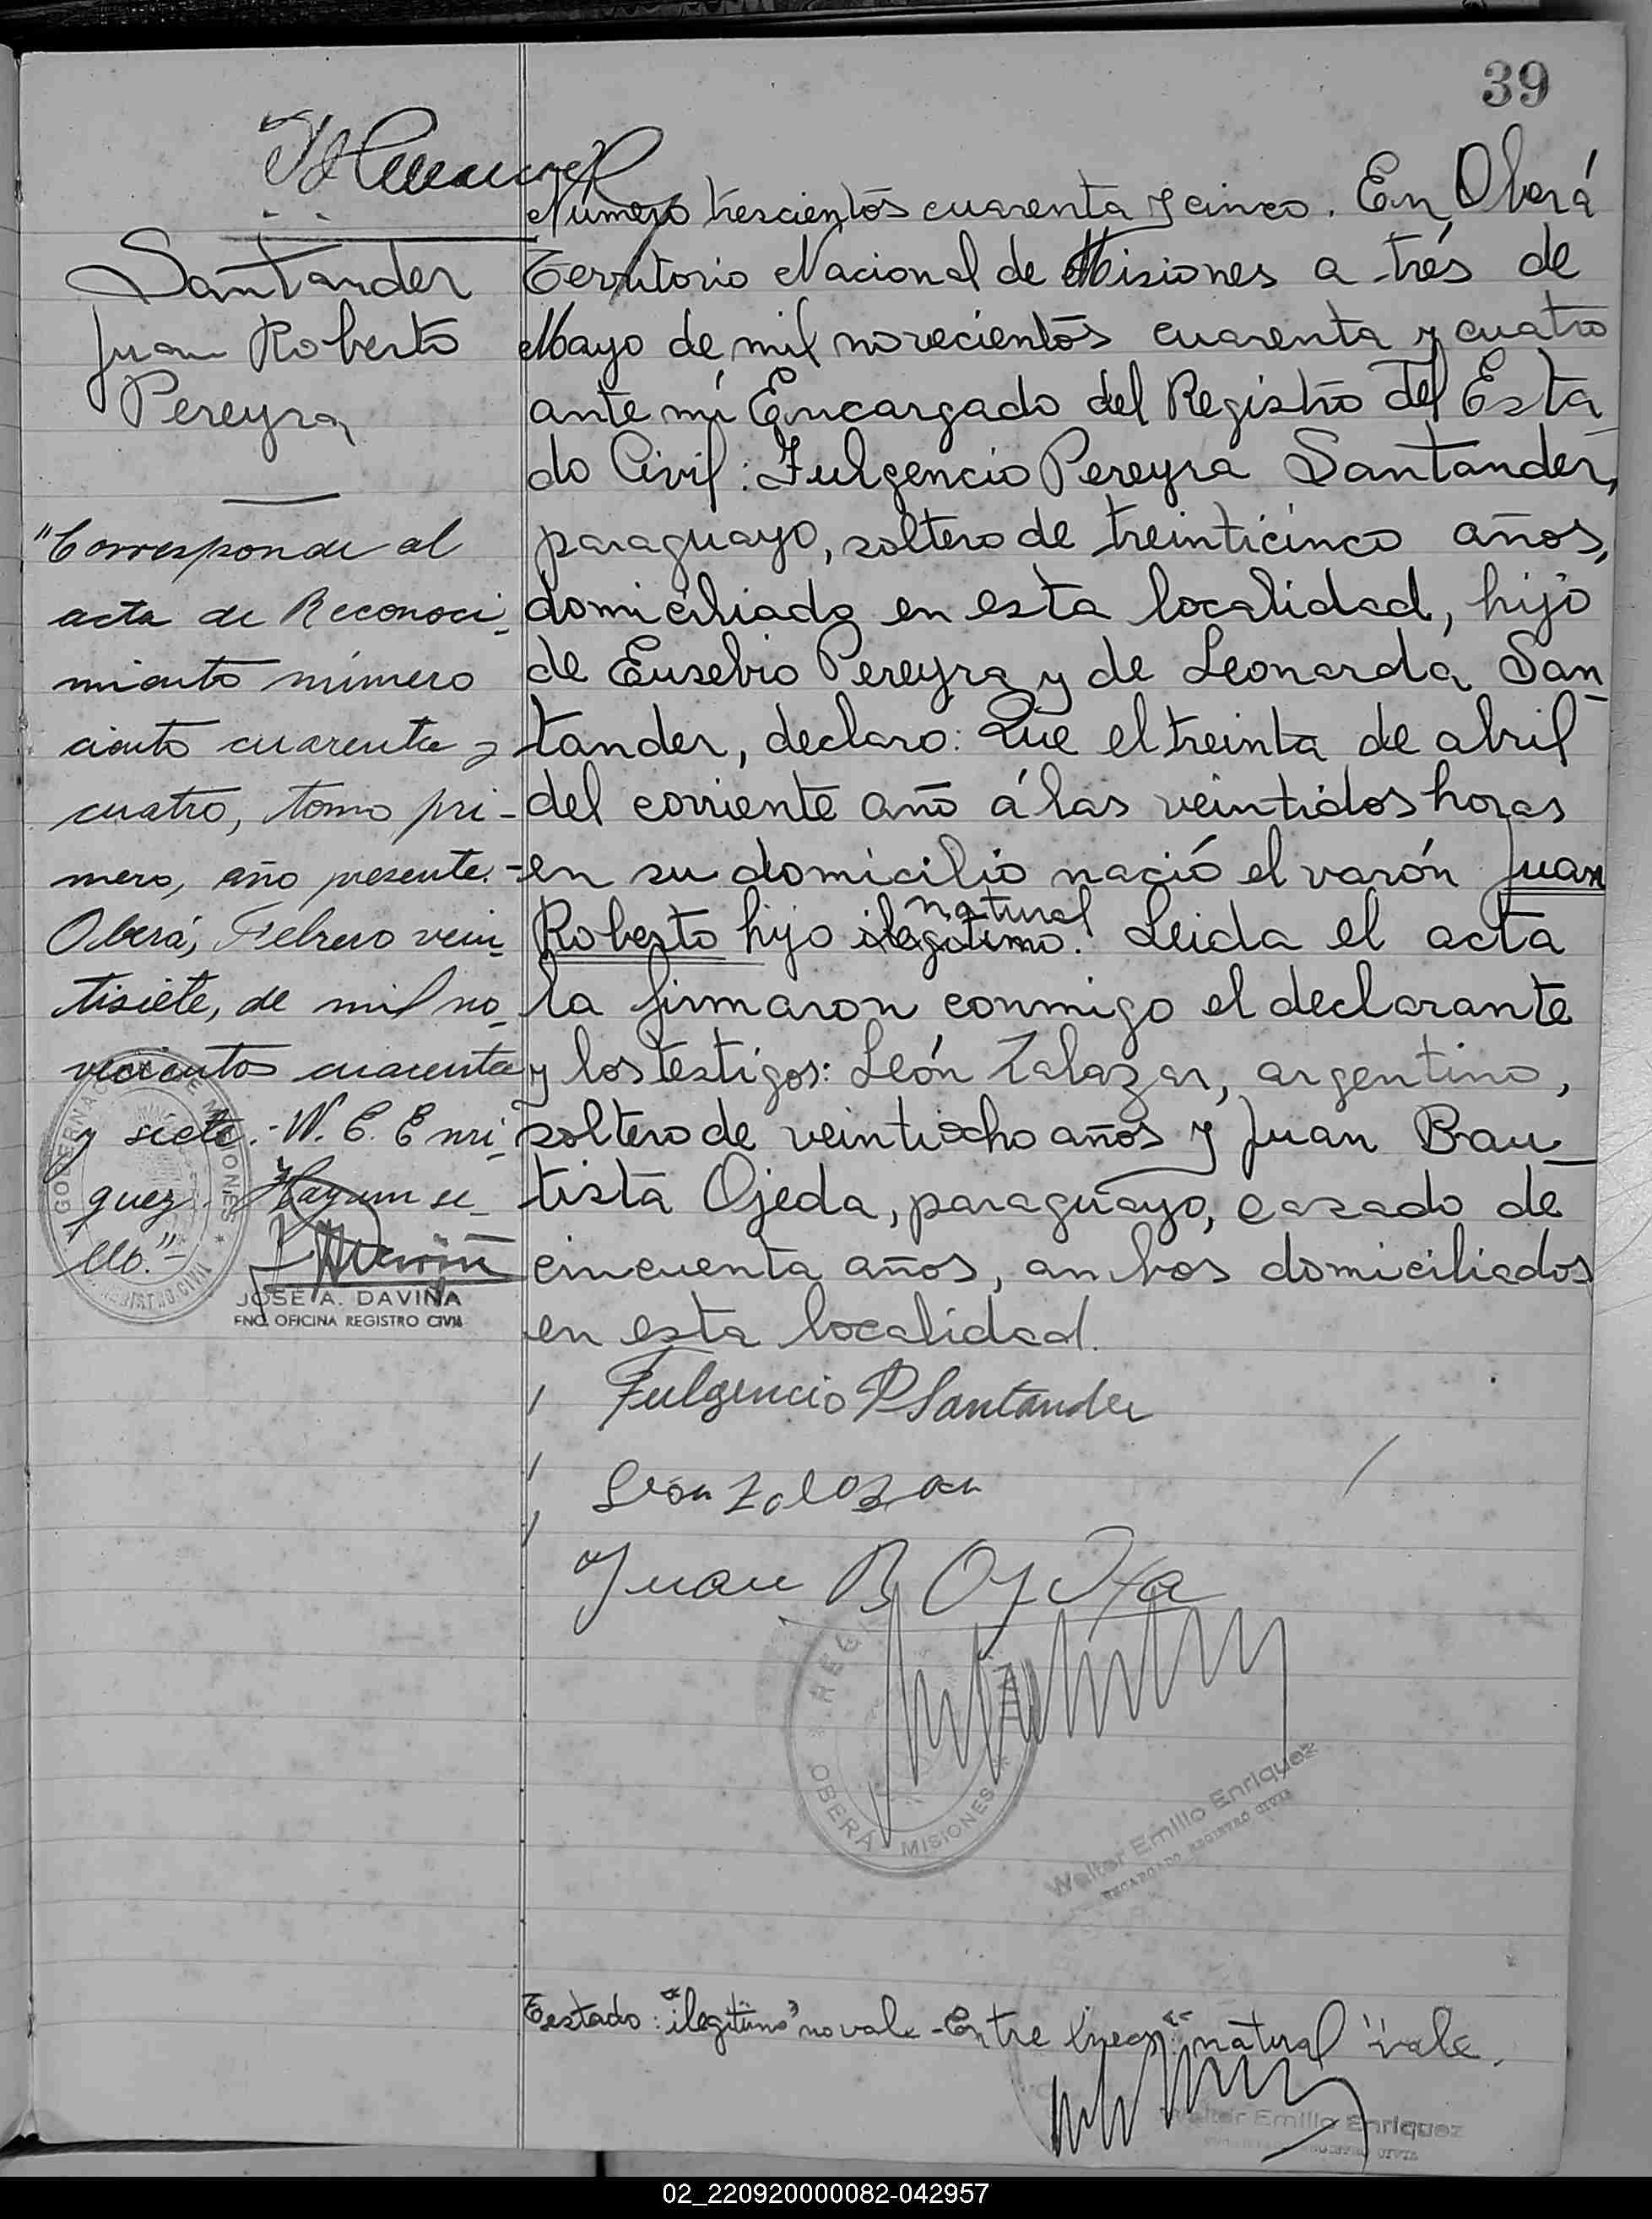 39
Santander
Juan Roberto
Pereyra
"Corresponde al
acta de Reconoci-
miento número
ciento cuarenta y
cuatro, tomo pri-
mero, año presente.-
Oberá, Febrero vein-
tisiete, de mil no-
vecientos cuarenta
y siete.- W. E. Enri-
quez. Hay un se-
llo."-
JOSE A. DAVIÑA
ENC. OFICINA REGISTRO CIVIL
Número trescientos cuarenta y cinco. En Oberá
Territorio Nacional de Misiones a trés de
Mayo de mil novecientos cuarenta y cuatro
ante mí Encargado del Registro del Esta-
do Civil: Fulgencio Pereyra Santander,
paraguayo, soltero de treinticinco años,
domiciliado en esta localidad, hijo
de Eusebio Pereyra y de Leonarda San-
tander, declaro: Que el treinta de abril
del corriente año á las veintidos horas
en su domicilio nació el varón Juan
Roberto hijo ilegitimo natural. Leida el acta
la firmaron conmigo el declarante
y los testigos: León Zalazar, argentino,
soltero de veintiocho años y Juan Bau-
tista Ojeda, paraguayo, casado de
cincuenta años, ambos domiciliados
en esta localidad.
Fulgencio P Santander
León Zalazar
Juan B Ojeda
OBERÁ MISIONES
Walter Emilio Enriquez
ENCARGADO REGISTRO CIVIL
Testado: "ilegitimo" no vale - Entre lineas: "natural" vale.
Walter Emilio Enriquez
02_220920000082-042957